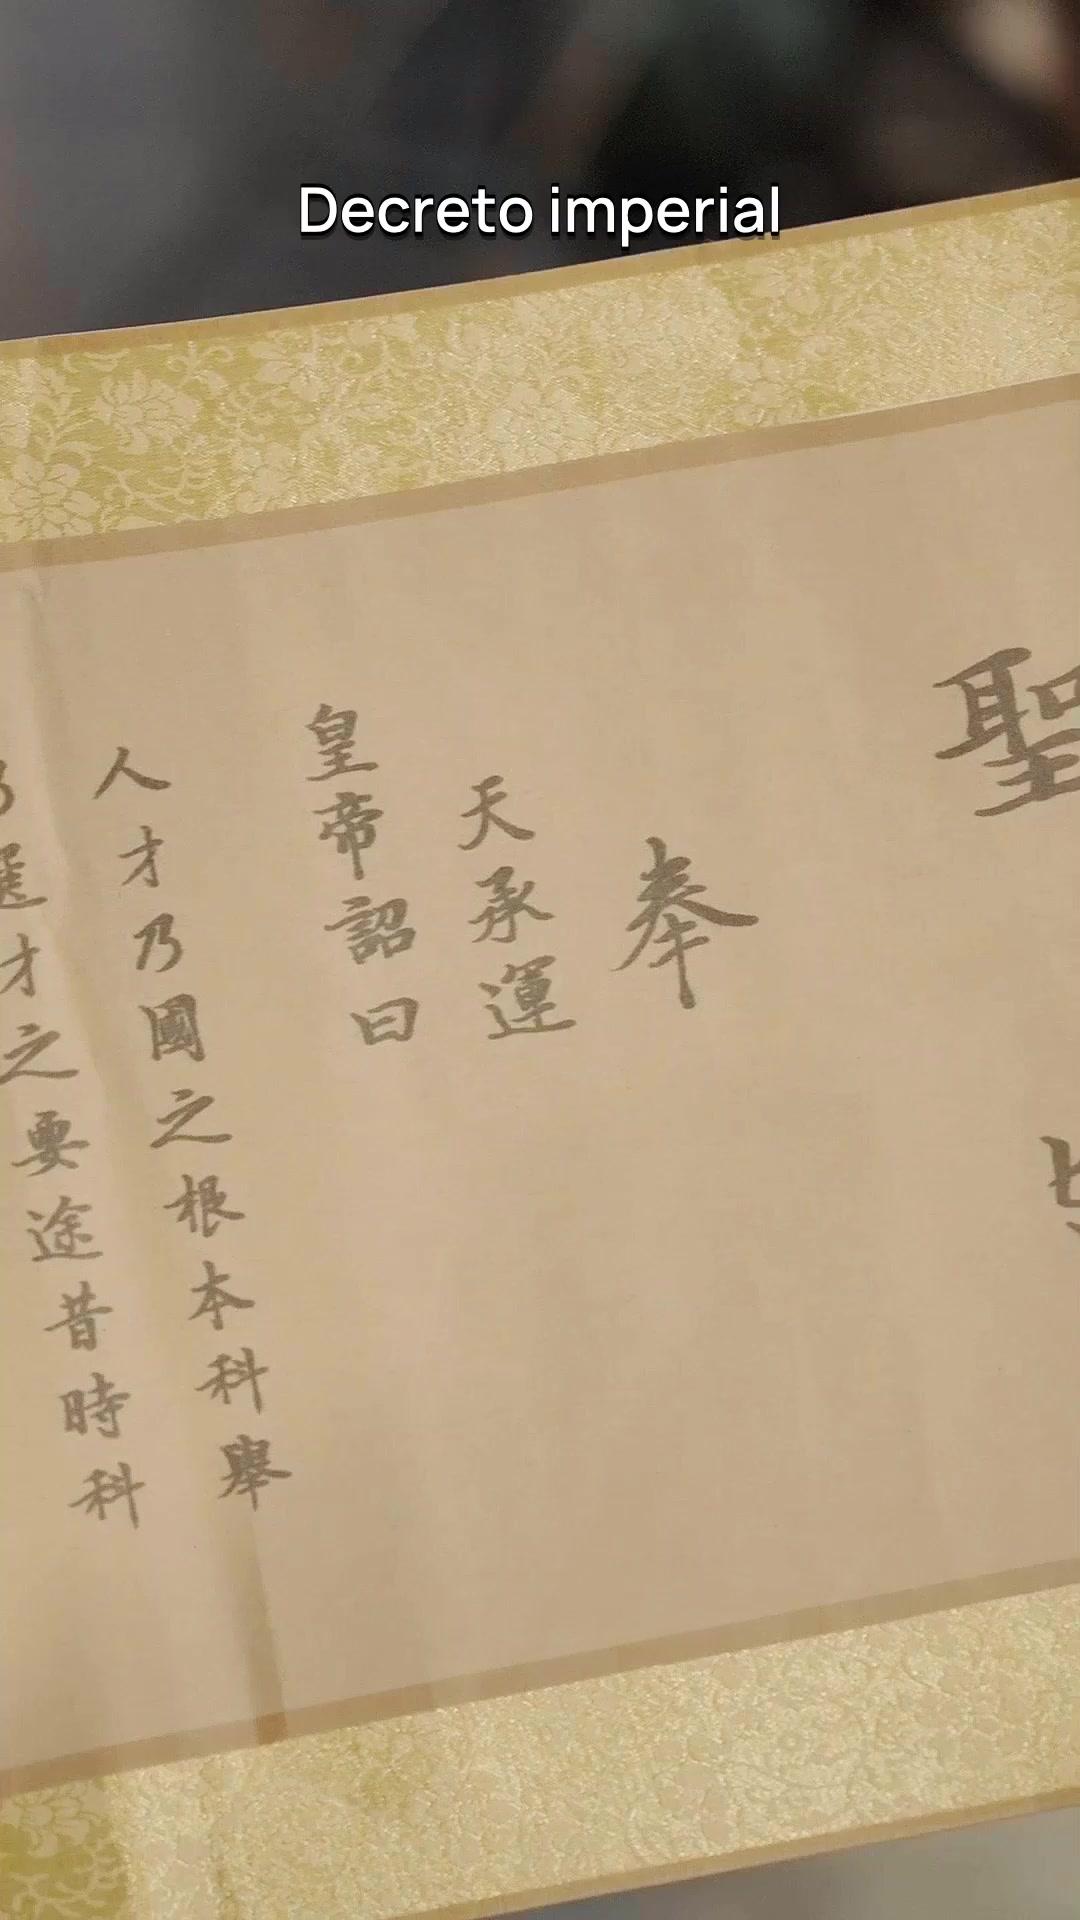 Decreto imperial
聖
奉
天承運
皇帝詔曰
人才乃國之根本科舉
乃選才之要途昔時科